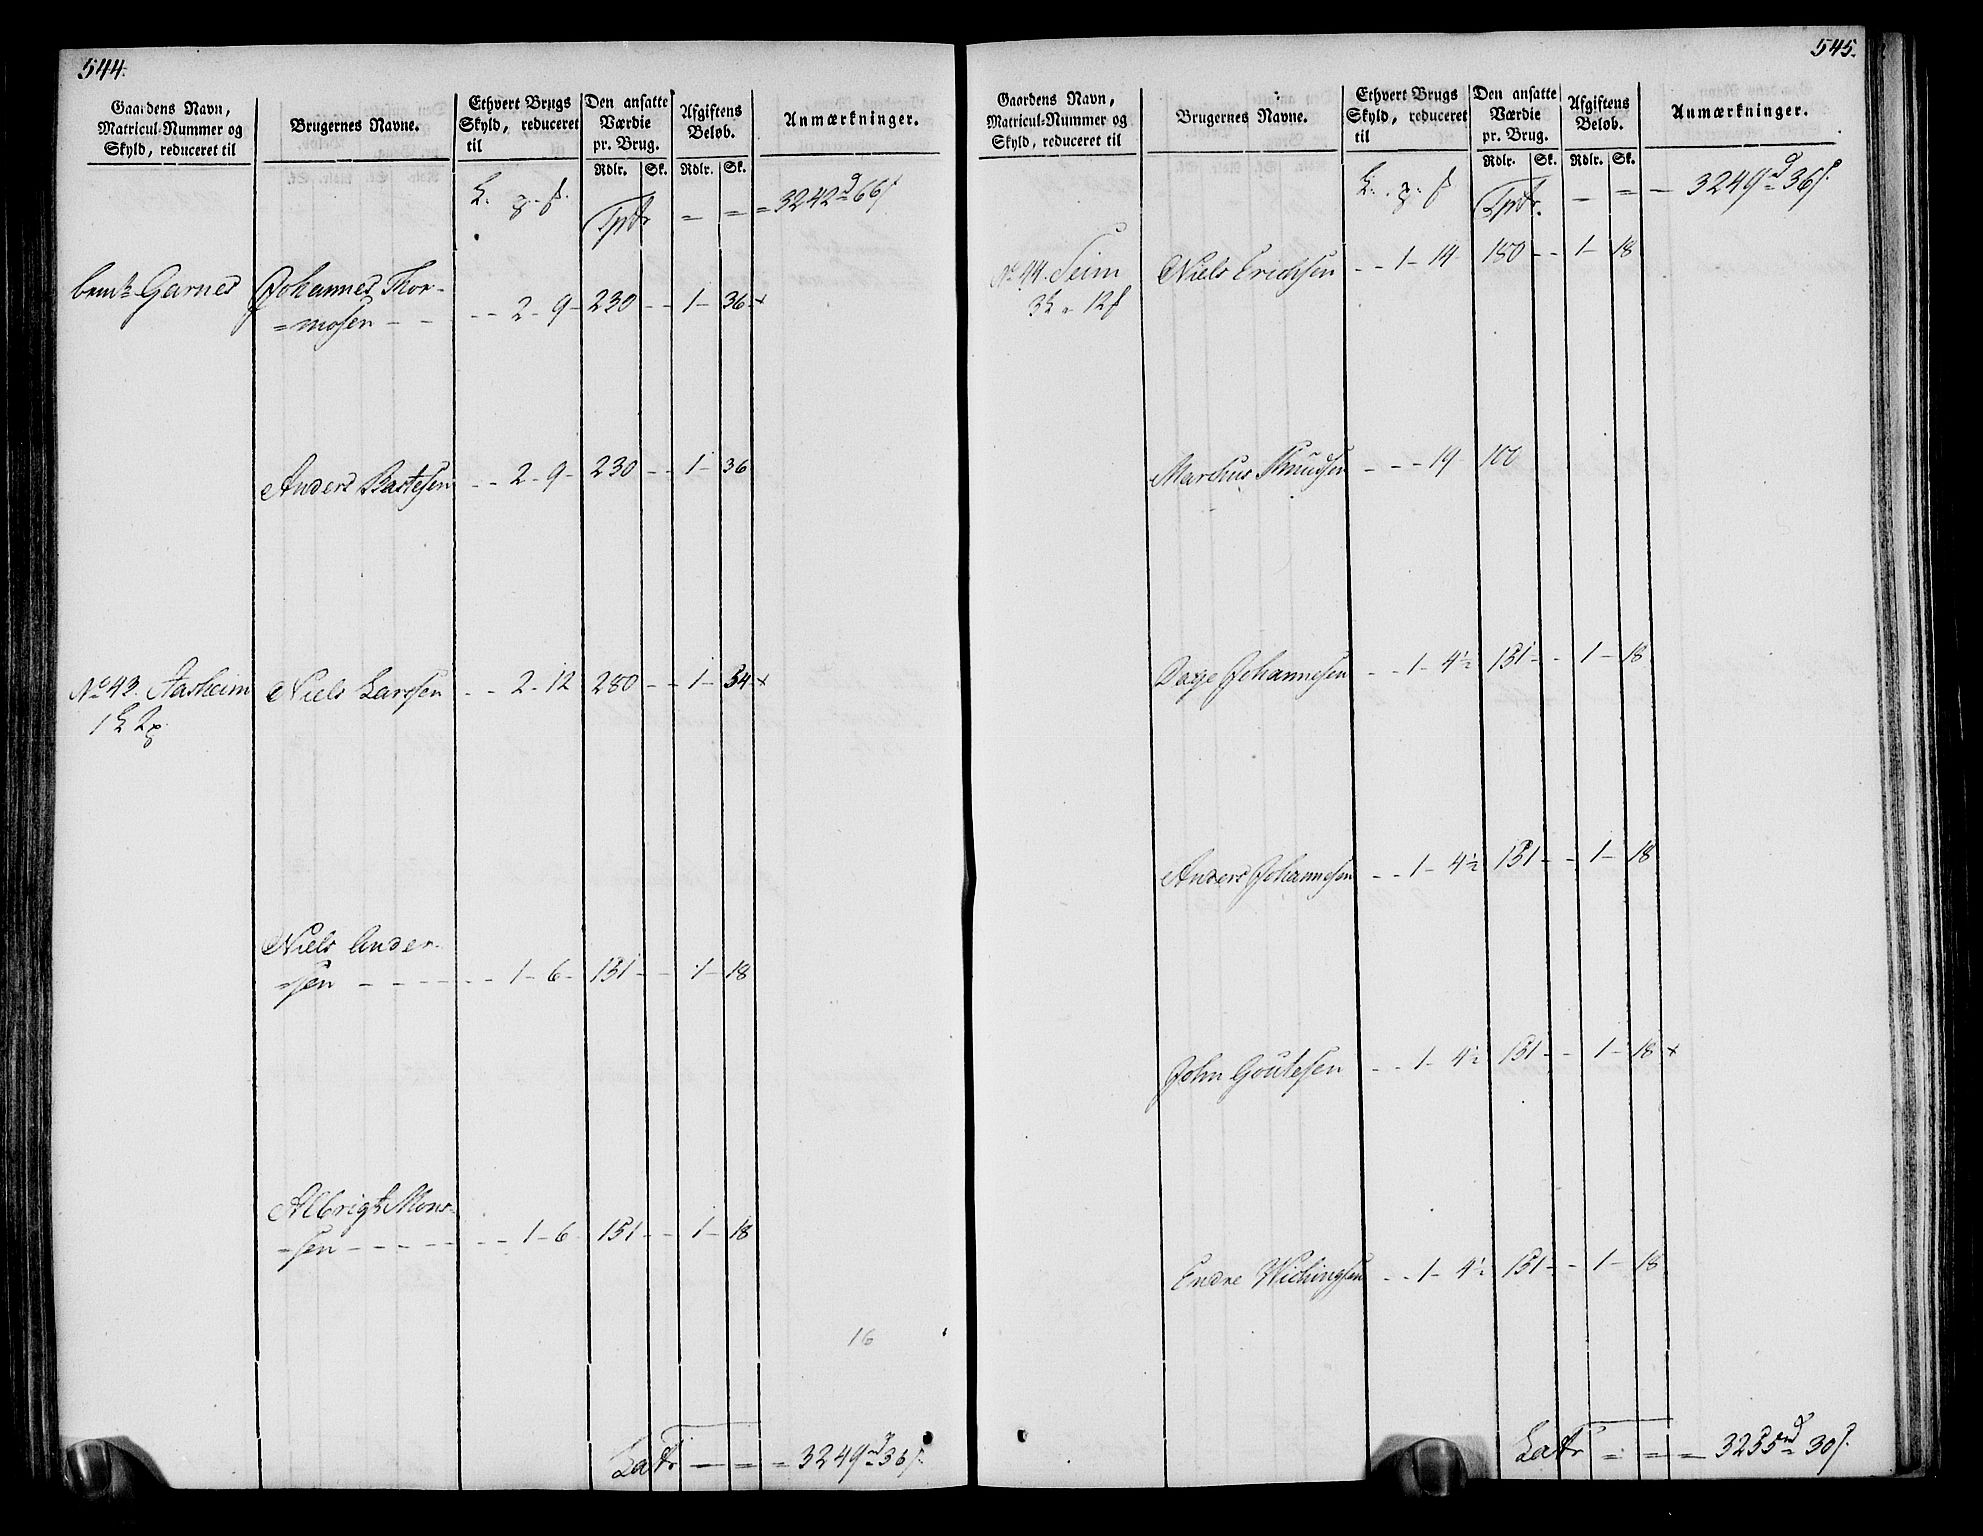 544.
Gaardens Navn, Matricul-Nummer og Skyld, reduceret til
Brugernes Navne.
Ethvert Brugs Skyld, reduceret til
Den ansatte Værdie pr. Brug.
Afgiftens Beløb.
Anmærkninger.
Rdlr. Sk. Rdlr. Sk.
Tpt = = = 3242 66
Garnes Johannes Thor-
=mosen - - - - 2 - 9 - 230 - - 1 - 36 x
Anders Bastesen - - 2 - 9 - 230 - - 1 - 36
No 43. Aasheim Niels Larssen - - 2 - 12 280 - - 1 - 54 x
Niels Ander-
=sen - - - - - - 1 - 6 - 151 - - 1 - 18
Albrigt Mons-
=sen - - - - - - - 1 - 6 151 - - 1 - 18
16
Lat - = = 3249 36
545.
Gaardens Navn, Matricul-Nummer og Skyld, reduceret til
Brugernes Navne.
Ethvert Brugs Skyld, reduceret til
Den ansatte Værdie pr. Brug.
Afgiftens Beløb.
Anmærkninger.
Rdlr. Sk. Rdlr. Sk.
Tpt. - = - 3249 36
No 44. Seim Niels Erichsen - - 1 - 14 180 - - 1 - 18
Marchus Knudsen - - - 19 100
Dage Johannesen - - 1 - 4½ 151 - - 1 - 18
Anders Johannesen - - 1 - 4½ 151 - - 1 - 18
John Goutesen - - 1 - 4½ 151 - - 1 - 18 x
Endre Wichingsen - - 1 - 4½ 151 - - 1 - 18
Lat = = = 3255 30